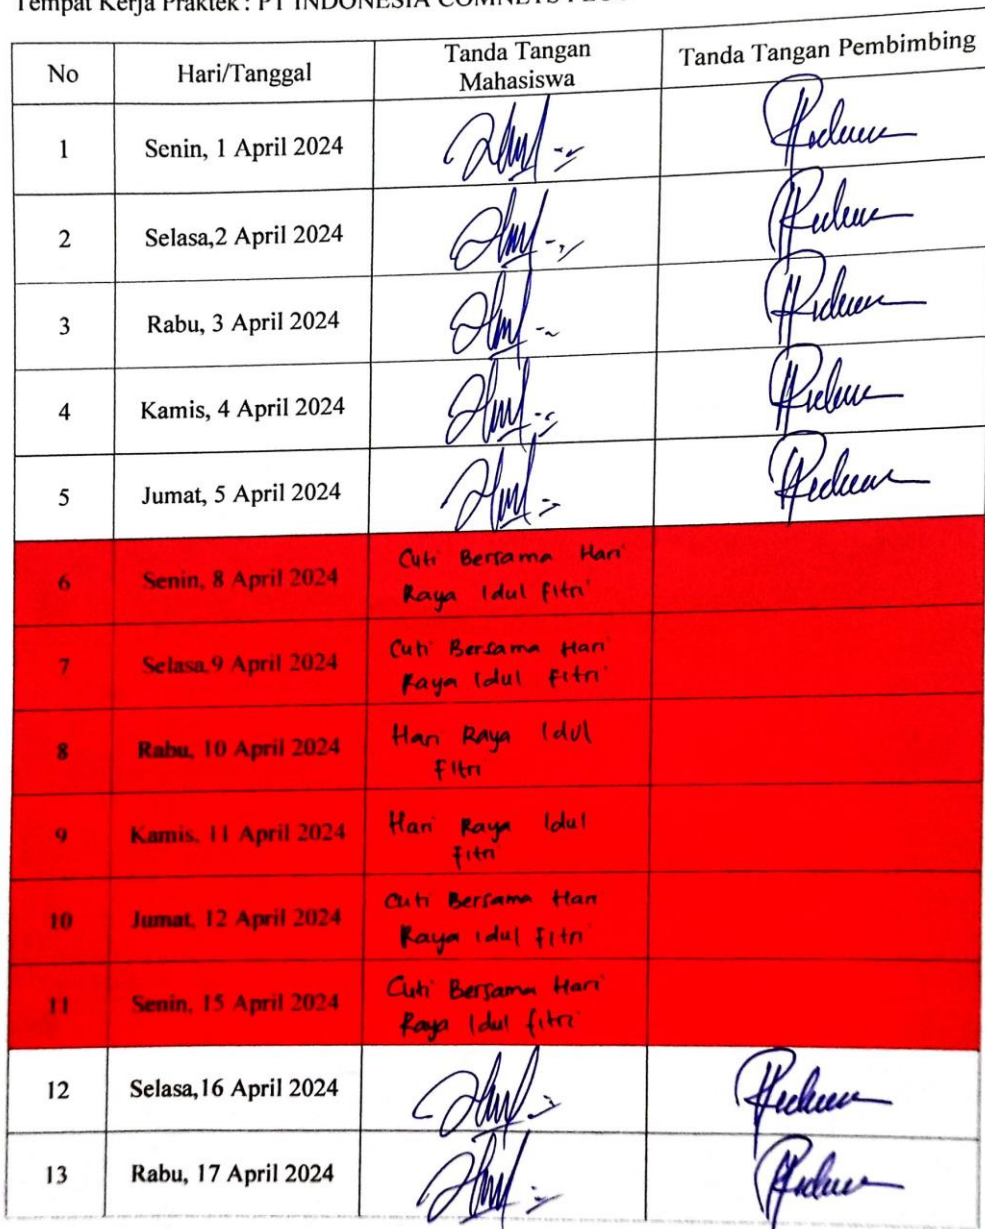 Tempat Kerja Praktek : PT INDONESIA COMNETS
No
Hari/Tanggal
Tanda Tangan
Mahasiswa
Tanda Tangan Pembimbing
1
Senin, 1 April 2024
2
Selasa,2 April 2024
3
Rabu, 3 April 2024
4
Kamis, 4 April 2024
5
Jumat, 5 April 2024
6
Senin, 8 April 2024
Cuti Bersama Hari
Raya Idul Fitri
7
Selasa,9 April 2024
Cuti Bersama Hari
Raya Idul Fitri
8
Rabu, 10 April 2024
Hari Raya Idul
Fitri
9
Kamis, 11 April 2024
Hari Raya Idul
Fitri
10
Jumat, 12 April 2024
Cuti Bersama Hari
Raya Idul Fitri
11
Senin, 15 April 2024
Cuti Bersama Hari
Raya Idul fitri
12
Selasa,16 April 2024
13
Rabu, 17 April 2024